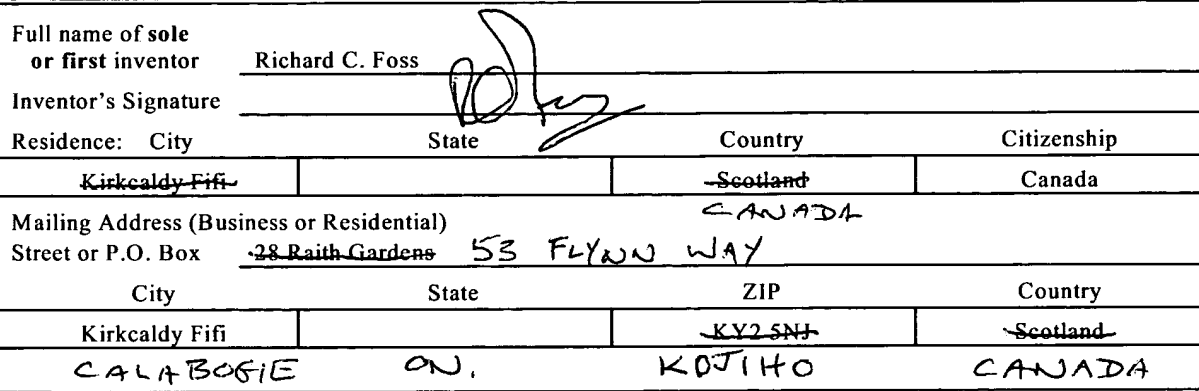 Full name of sole
or first inventor Richard C. Foss
Inventor's Signature
Residence: City State Country Citizenship
Kirkcaldy Fifi Scotland Canada
CANADA
Mailing Address (Business or Residential)
Street or P.O. Box 28 Raith Gardens 53 FLYNN WAY
City State ZIP Country
Kirkcaldy Fifi KY2 5NJ Scotland
CALABOGIE ON. K0J1H0 CANADA